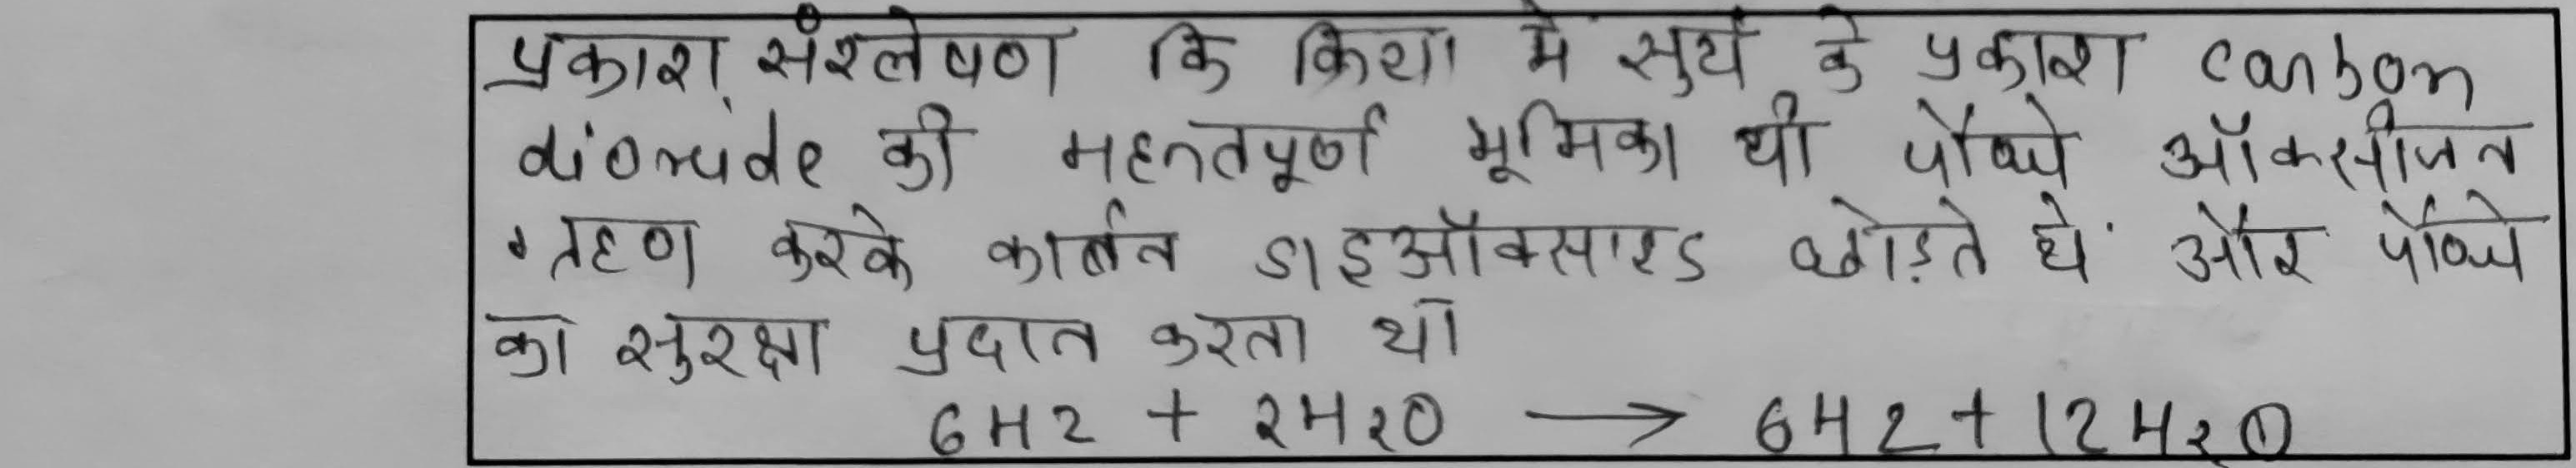 प्रकाश संश्लेषण कि क्रिया मे सुर्य के प्रकाश carbon
dioxide की महत्वपूर्ण भूमिका थी पौधे ऑक्सीजन
ग्रहण करके कार्बन डाइऑक्साइड छोड़ते थे और पौधे
का सुरक्षा प्रदान करता था
6H2 + 2H2O → 6H2 + 12H2O